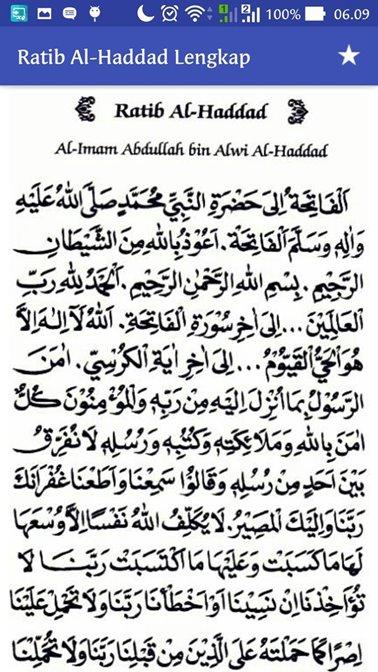 100% 06.09
Ratib Al-Haddad Lengkap
Ratib Al-Haddad
Al-Imam Abdullah bin Alwi Al-Haddad
اَلْفَاتِحَةُ اِلَى حَضْرَةِ النَّبِيِّ مُحَمَّدٍ صَلَّى اللهُ عَلَيْهِ
وَاٰلِهِ وَسَلَّمَ اَلْفَاتِحَةْ. اَعُوْذُ بِاللهِ مِنَ الشَّيْطَانِ
الرَّجِيْمِ. بِسْمِ اللهِ الرَّحْمٰنِ الرَّحِيْمِ. اَلْحَمْدُ لِلّٰهِ رَبِّ
الْعَالَمِيْنَ ... اِلَى اٰخِرِ سُوْرَةِ الْفَاتِحَةِ. اَللهُ لَآ اِلٰهَ اِلَّا
هُوَ الْحَيُّ الْقَيُّوْمُ ... اِلَى اٰخِرِ اٰيَةِ الْكُرْسِيِّ. اٰمَنَ
الرَّسُوْلُ بِمَآ اُنْزِلَ اِلَيْهِ مِنْ رَبِّهِ وَالْمُؤْمِنُوْنَ كُلٌّ
اٰمَنَ بِاللهِ وَمَلَائِكَتِهِ وَكُتُبِهِ وَرُسُلِهِ لَا نُفَرِّقُ
بَيْنَ اَحَدٍ مِنْ رُسُلِهِ وَقَالُوْا سَمِعْنَا وَاَطَعْنَا غُفْرَانَكَ
رَبَّنَا وَاِلَيْكَ الْمَصِيْرُ. لَا يُكَلِّفُ اللهُ نَفْسًا اِلَّا وُسْعَهَا
لَهَا مَا كَسَبَتْ وَعَلَيْهَا مَا اكْتَسَبَتْ رَبَّنَا لَا
تُؤَاخِذْنَا اِنْ نَسِيْنَا اَوْ اَخْطَأْنَا رَبَّنَا وَلَا تَحْمِلْ عَلَيْنَا
اِصْرًا كَمَا حَمَلْتَهُ عَلَى الَّذِيْنَ مِنْ قَبْلِنَا رَبَّنَا وَلَا تُحَمِّلْنَا